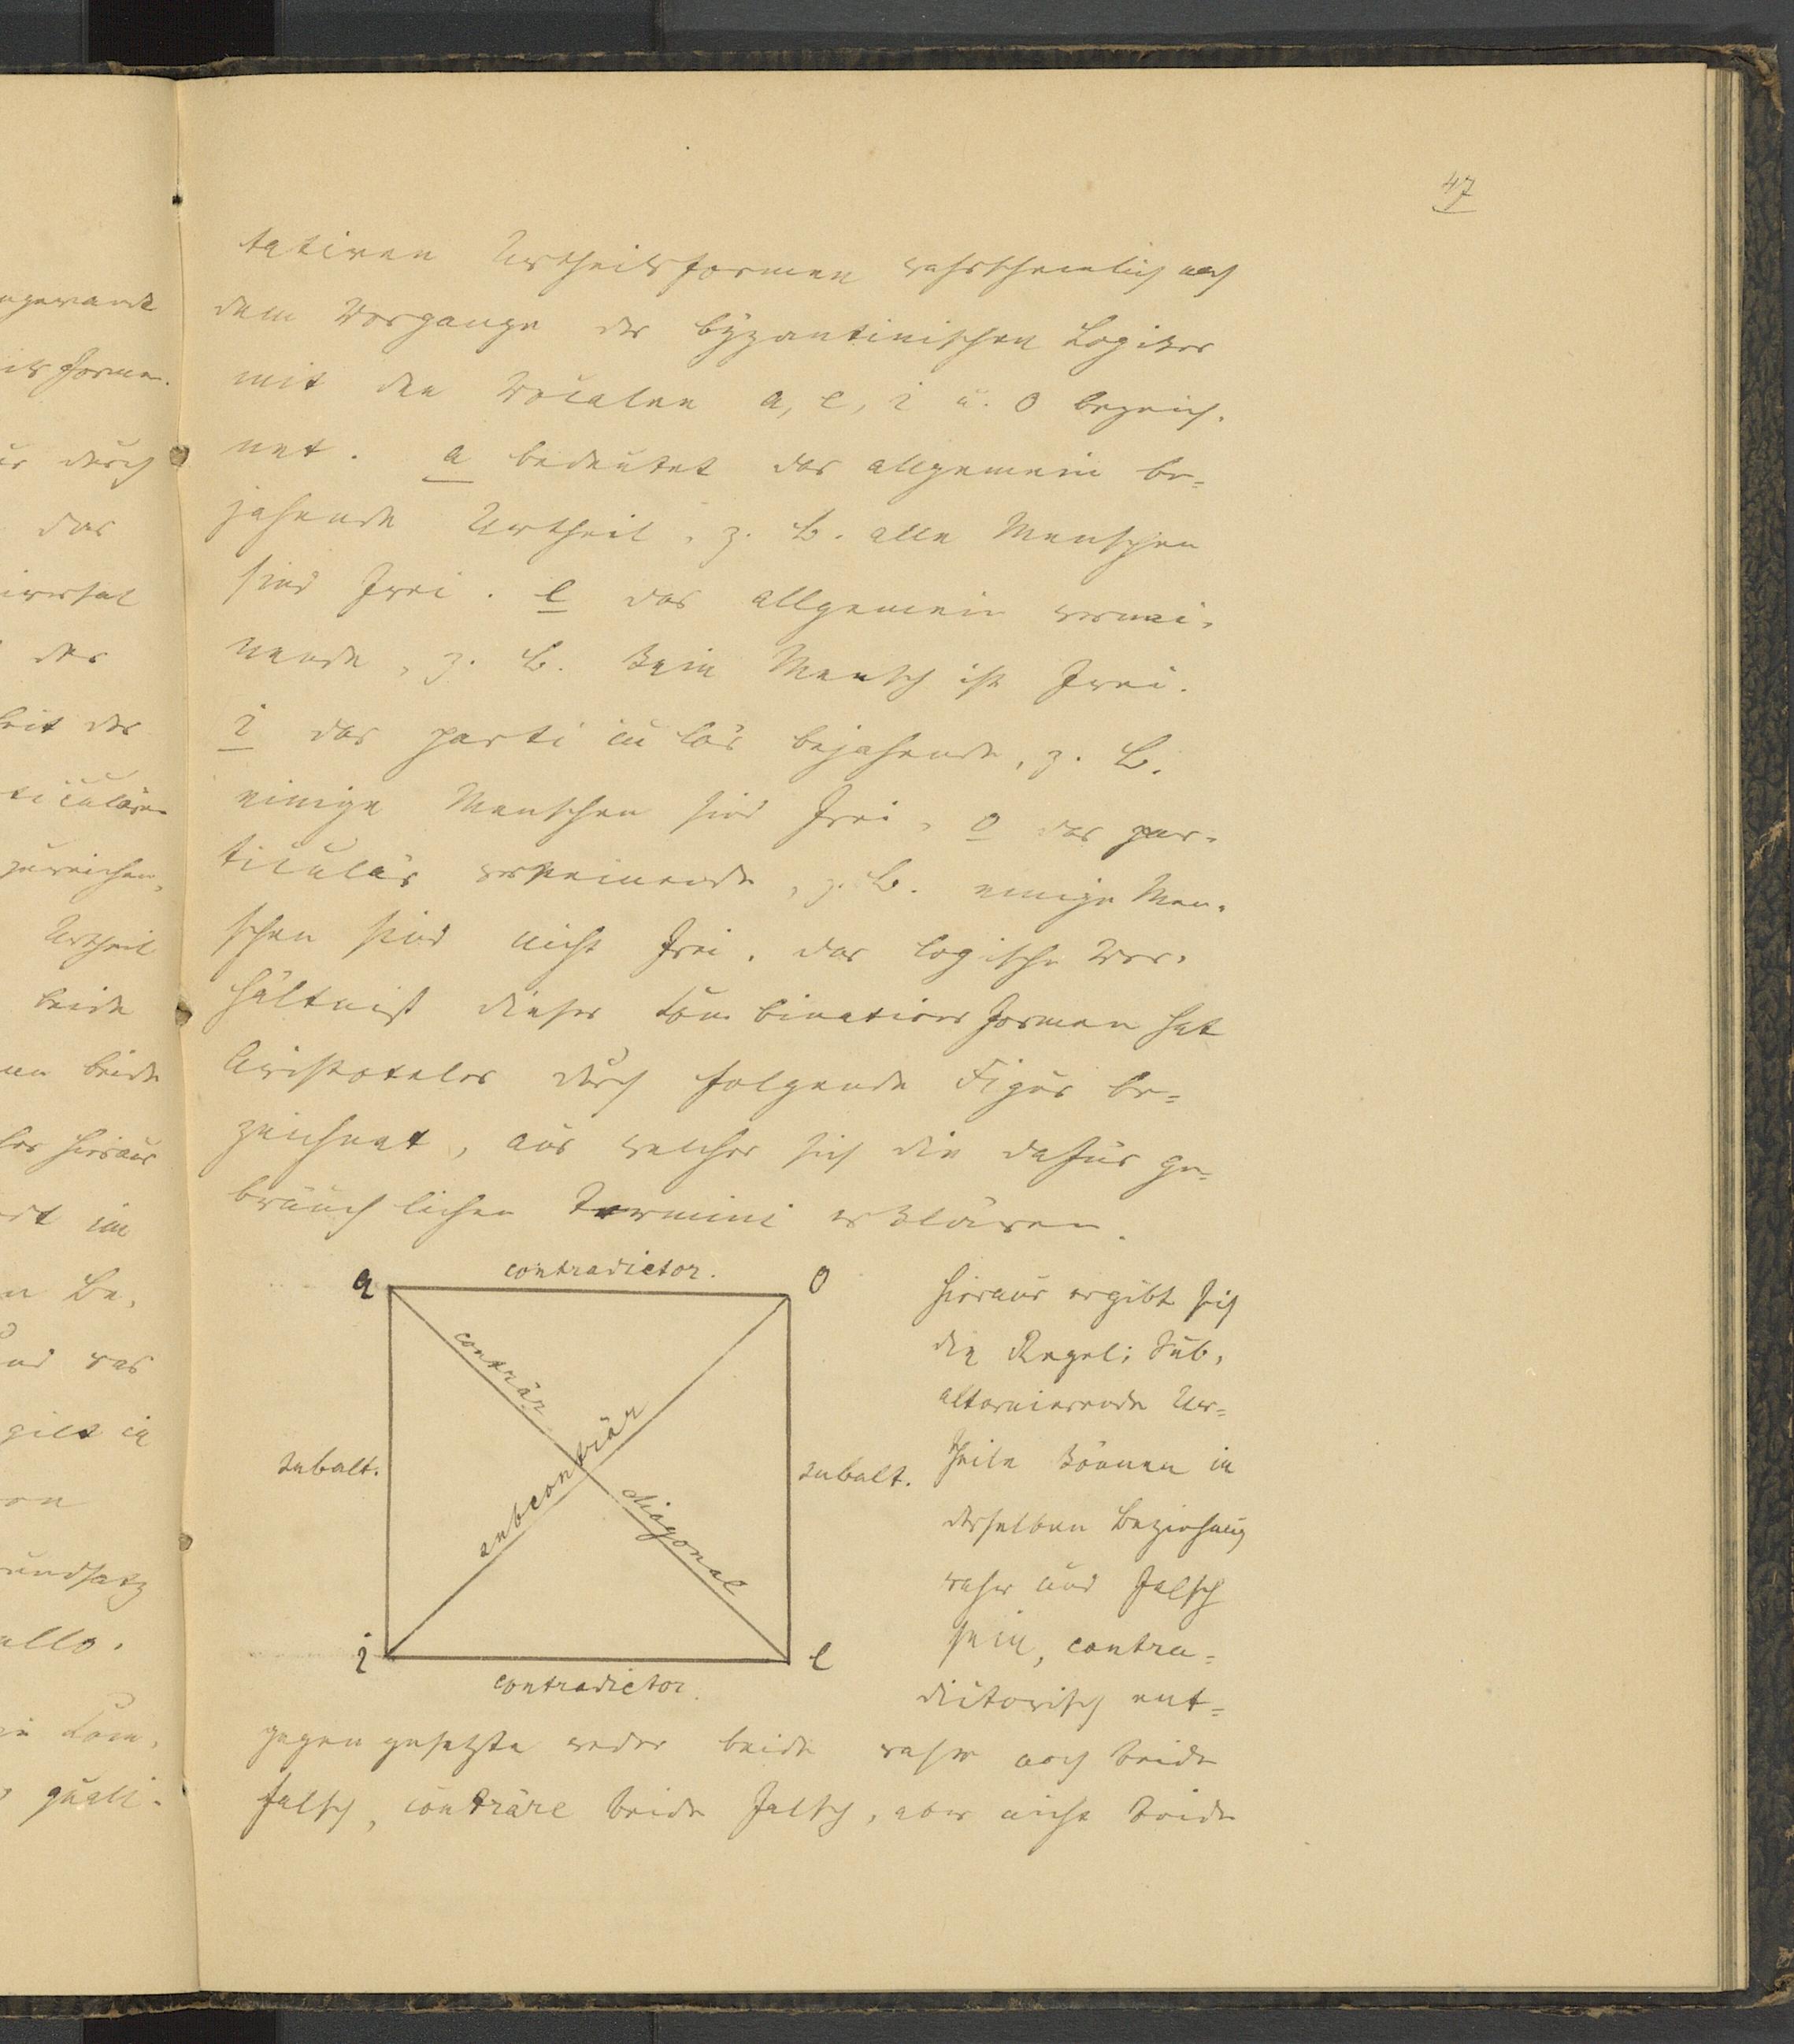 47
tativen Urtheilsformen wahrscheinlich nach
dem Vorgange der byzantinischen Logiker
mit den Vocalen a, e, i u. o bezeich-
net. a bedeutet das allgemein be=
jahende Urtheil, z. B. alle Menschen
sind frei. e das allgemein vernei-
nende, z. B. Kein Mensch ist frei.
i das particulär bejahende, z. B.
einige Menschen sind frei, o das par-
ticulär verneinende, z. B. einige Men-
schen sind nicht frei. das logische Ver-
hältniß dieser Combinationsformen hat
Aristoteles durch folgende Figur be=
zeichnet, aus welcher sich die dafür ge=
bräuchlichen Termini erklären.
contradictor.
a
o
conträr
subconträr
diagonal
subalt.
subalt.
i
e
contradictor.
hieraus ergibt sich
die Regel: Sub-
alternierende Ur=
theile können in
derselben Beziehung
wahr und falsch
sein, contra=
dictorisch ent=
gegengesetzte weder beide wahr noch beide
falsch, conträre beide falsch, aber nicht beide
ngewandt
ils forme.
durch
das
iversal
der
heit der
ticulären
zureichen,
Urtheil
beide
beide
hieraus
im
Be-
und was
gilt in
von
rundsatz
Com-
quali-